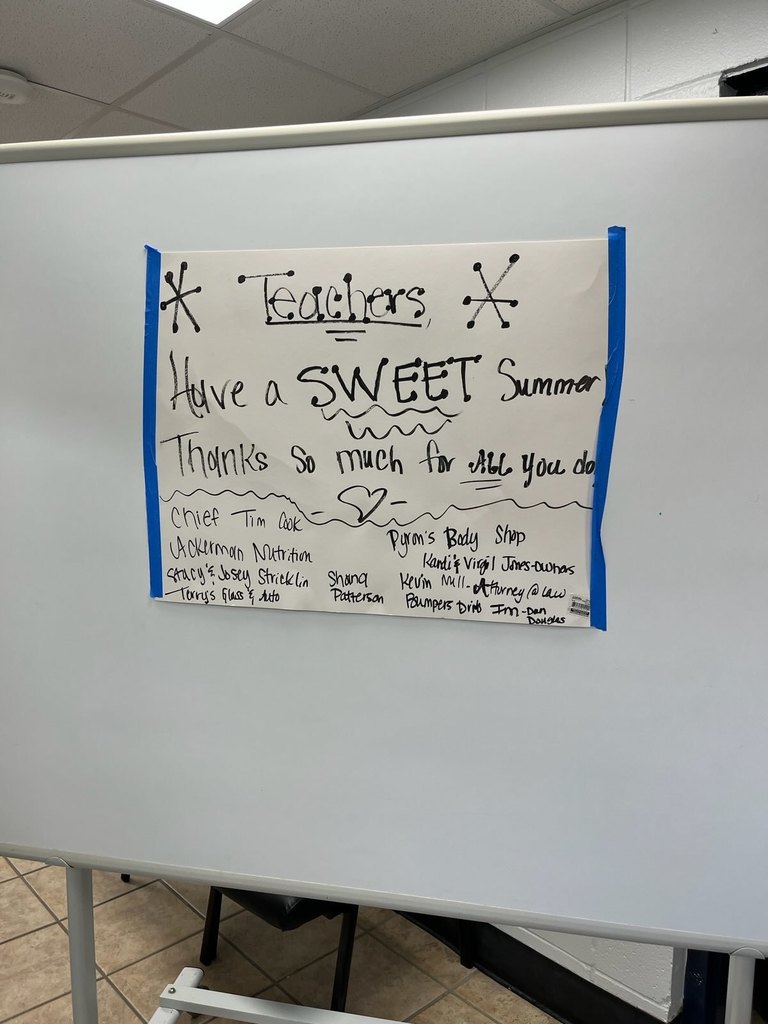 * Teachers, *
Have a SWEET Summer
Thanks so much for ALL you do
Chief Tim Cook
Ackerman Nutrition
Stacy & Josey Stricklin
Terry's Glass & Auto
Shana
Patterson
Pyron's Body Shop
Kandi & Virgil Jones-owners
Kevin Null - Attorney @ Law
Bumpers Drive In - Dan
Douglas